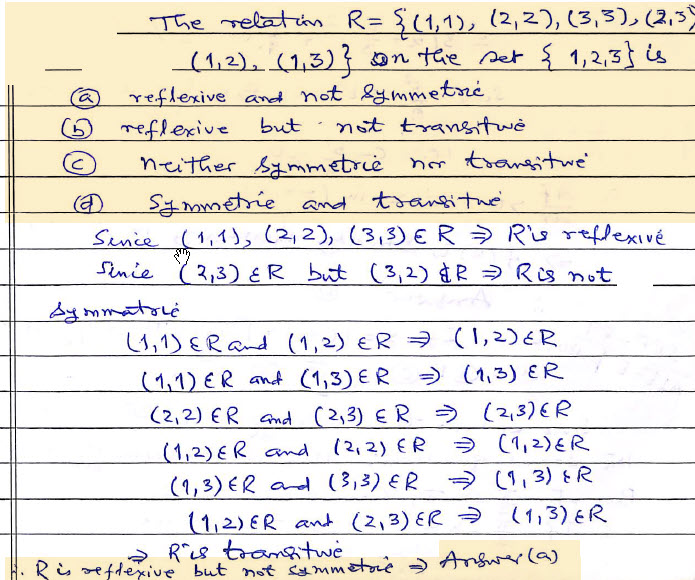 The relation R = {(1,1), (2,2), (3,3), (2,3)
(1,2), (1,3)} on the set {1,2,3} is
(a) reflexive and not symmetric
(b) reflexive but not transitive
(c) neither symmetric nor transitive
(d) symmetric and transitive
Since (1,1), (2,2), (3,3) ∈ R ⇒ R is reflexive
Since (2,3) ∈ R but (3,2) ∉ R ⇒ R is not
symmetric
(1,1) ∈ R and (1,2) ∈ R ⇒ (1,2) ∈ R
(1,1) ∈ R and (1,3) ∈ R ⇒ (1,3) ∈ R
(2,2) ∈ R and (2,3) ∈ R ⇒ (2,3) ∈ R
(1,2) ∈ R and (2,2) ∈ R ⇒ (1,2) ∈ R
(1,3) ∈ R and (3,3) ∈ R ⇒ (1,3) ∈ R
(1,2) ∈ R and (2,3) ∈ R ⇒ (1,3) ∈ R
⇒ R is transitive
∴ R is reflexive but not symmetric ⇒ Answer (a)